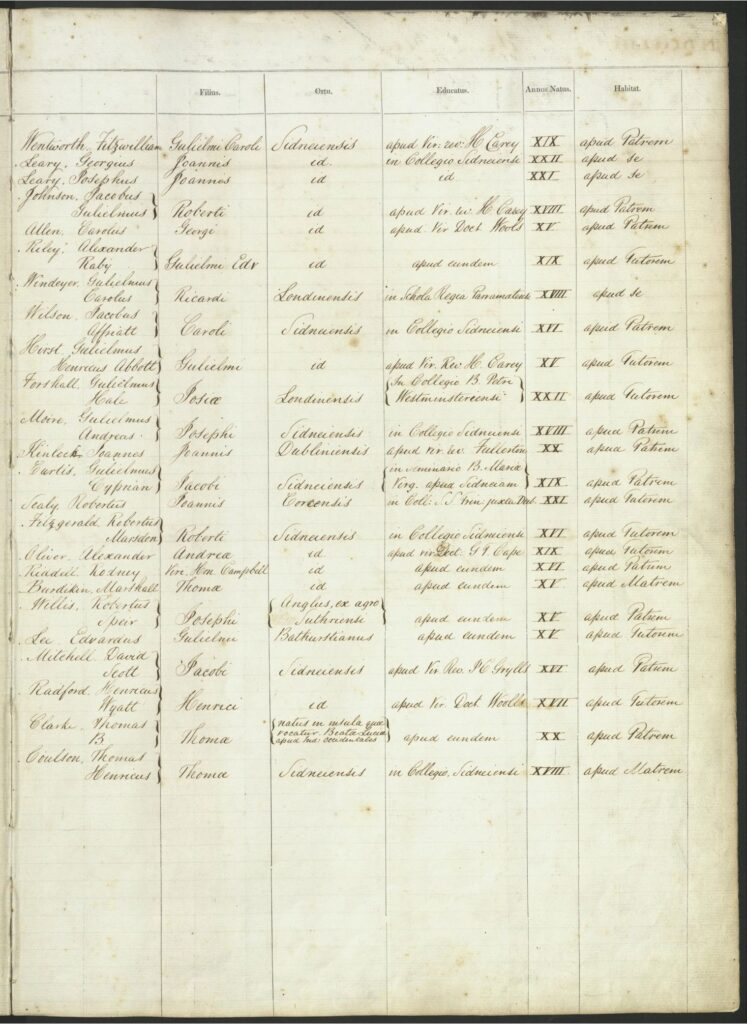 Filius. Ortu. Educatus. Annos Natus. Habitat.
Wentworth, Fitzwilliam Gulielmi Caroli Sidneiensis apud Vir. rev. H Carey XIX apud Patrem
Leary, Georgius Joannis id. in Collegio Sidneiense XXII apud se
Leary, Josephus Joannes id id XXI apud se
Johnson, Jacobus
Gulielmus Roberti id apud Vir. rev. H. Carey XVIII apud Patrem
Allen, Carolus Georgi id apud Vir Doct Woolls XV apud Patrem
Riley, Alexander
Raby Gulielmi Edv id apud eundem XIX apud Tutorem
Windeyer, Gulielmus
Carolus Ricardi Londinensis in Schola Regia Parramatensi XVIII apud se
Wilson, Jacobus
Caroli Sidneiensis in Collegio Sidneiensi XVI apud Patrem
Hirst, Gulielmus
Henricus Abbott Gulielmi id apud Vir. Rev. H. Carey XV apud Tutorem
Forshall, Gulielmus In Collegio B. Petri
Hale Josiæ Londinensis Westmonsterensi XXII apud Tutorem
Moire, Gulielmus
Andreas Josephi Sidneiensis in Collegio Sidneiensi XVIII apud Patrem
Kinlock Joannes Joannis Dubliniensis apud vir. rev. Fullerton XX apud Patrem
Curtis, Gulielmus in seminario B. Mariæ
Cyprian Jacobi Sidneiensis Virg. apud Sidneiam XIX apud Patrem
Sealy, Robertus Joannis Corcensis in Coll: S.S trin. juxta Dub. XXI apud Tutorem
Fitzgerald Robertus
Marsden Roberti Sidneiensis in Collegio Sidneiense XVI apud Tutorem
Oliver, Alexander Andreæ id apud vir. Doct. G F Cape XIX apud Tutorem
Riddell Rodney Ven. Hon. Campbell id apud eundem XVI apud Patrem
Burdekin, Marshall Thomæ id apud eundem XV apud Matrem
Willis, Robertus Anglus, ex agro
Speir Josephi Suthriensi apud eundem XV apud Patrem
Lee Edvardus Gulielmi Bathurstianus apud eundem XV apud Tutorem
Mitchell David
Scott Jacobi Sidneiensis apud Vir Rev. Grylls XVI apud Patrem
Radford, Henricus
Wyatt Henrici id apud Vir. Doct Woolls XVII apud Tutorem
Clarke, Thomas natus in insula quæ
B Thomæ vocatur Beatæ Luciæ apud eundem XX apud Patrem
apud Ind. occidentales
Coulson, Thomas
Henricus Thomæ Sidneiensis in Collegio, Sidneiensi XVIII apud Matrem